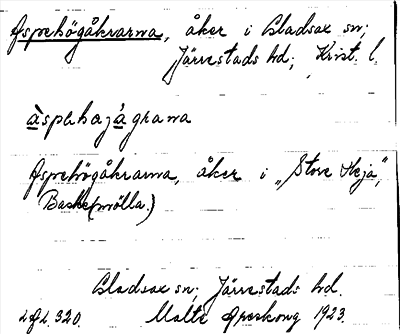 Aspehögåkrarna, åker i Gladsax sn;
Järrestads hd; Krist. l.
àspahøjágrana
Aspehögåkrarna, åker i „Store Heja",
Baske(mölla.)
Gladsax sn; Järrestads hd.
320. Malte 1923.